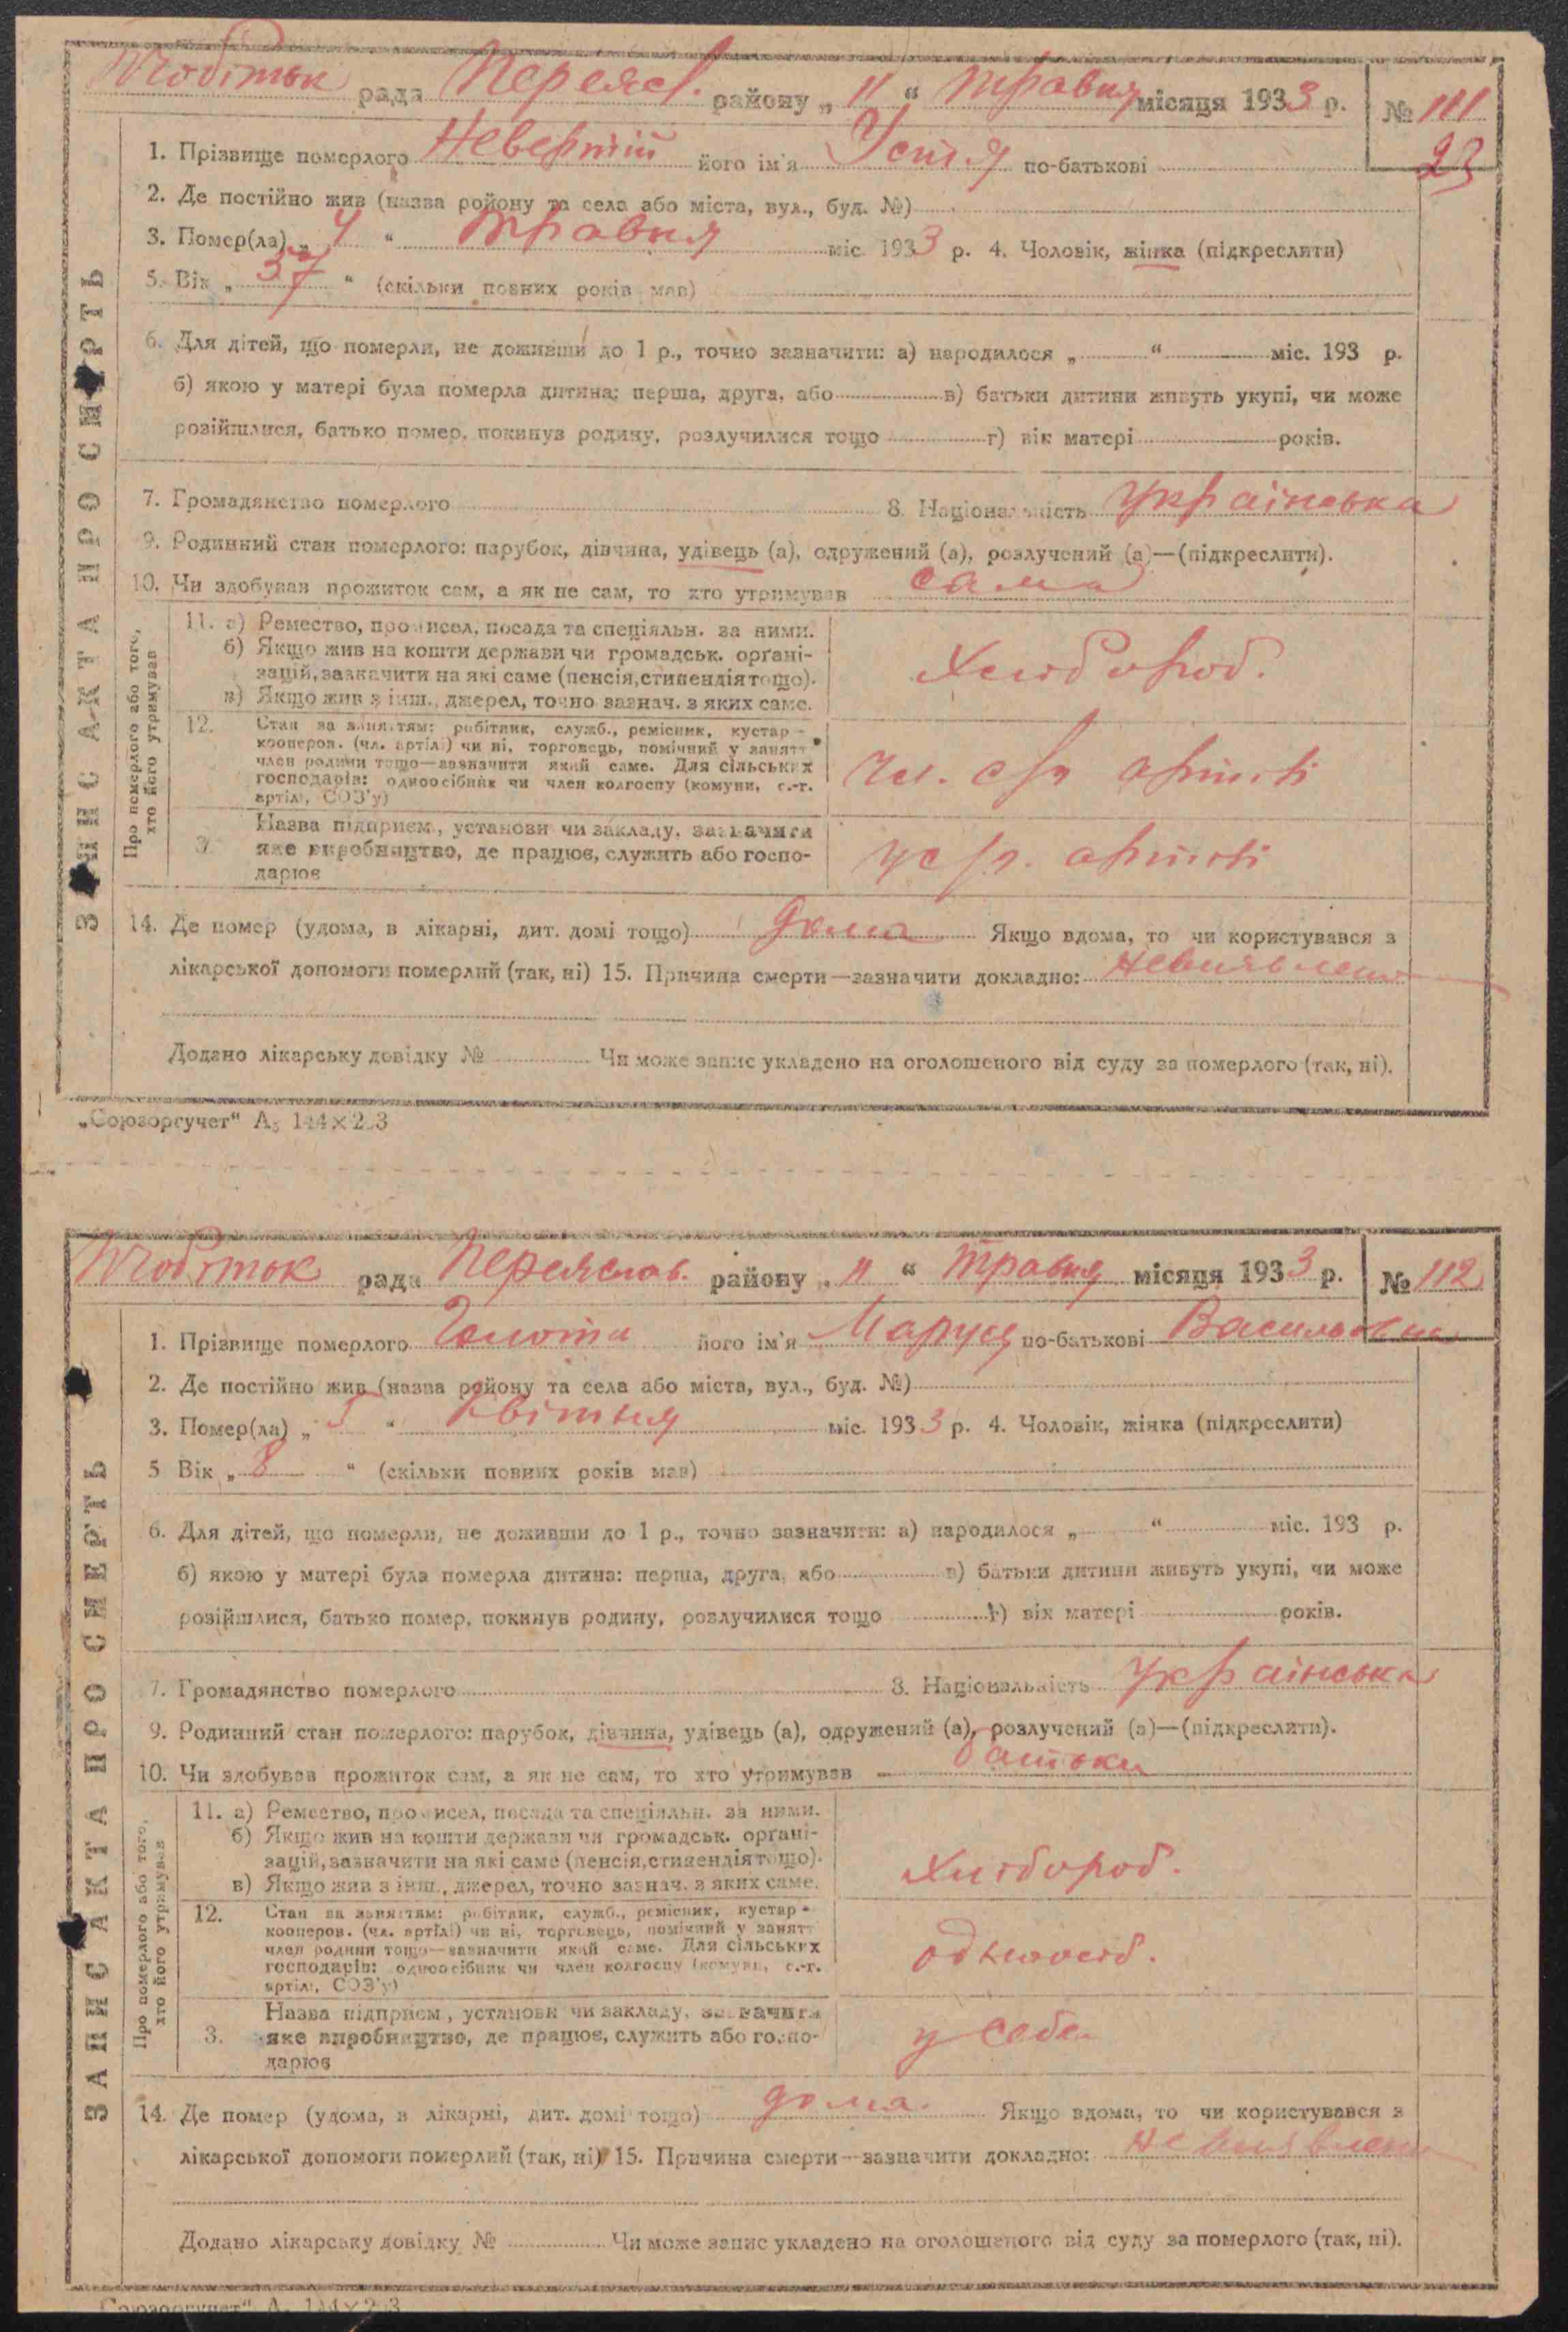 рада Переясл. району „ 11 “ травня місяця 1933 р. № 111
23
1. Прізвище померлого його ім'я Устя по-батькові
2. Де постійно жив (назва району та села або міста, вул., буд. №)
3. Помер(ла) „ 4 “ травня міс. 1933 р. 4. Чоловік, жінка (підкреслити)
5. Вік „ 37 “ (скільки повних років мав)
6. Для дітей, що померли, не доживши до 1 р., точно зазначити: а) народилося „ “ міс. 193 р.
б) якою у матері була померла дитина: перша, друга, або в) батьки дитини живуть укупі, чи може
розійшлися, батько помер, покинув родину, розлучилися тощо г) вік матері років.
7. Громадянство померлого 8. Національність українська
9. Родинний стан померлого: парубок, дівчина, удівець (а), одружений (а), розлучений (а)—(підкреслити).
10. Чи здобував прожиток сам, а як не сам, то хто утримував сама
ЗАПИС АКТА ПРО СМЕРТЬ
Про померлого або того,
хто його утримував
11. а) Ремество, промисел, посада та спеціяльн. за ними.
б) Якщо жив на кошти держави чи громадськ. орґані-
зацій, зазначити на які саме (пенсія, стипендія тощо).
в) Якщо жив з інш., джерел, точно зазнач. з яких саме.
Хлібороб.
12. Стан за заняттям: робітник, служб., ремісник, кустар -
кооперов. (чл. артілі) чи ні, торговець, помічний у занятт
член родини тощо—зазначити який саме. Для сільських
господарів: одноосібник чи член колгоспу (комуни, с.-г.
артілі, СОЗ'у)
чл. с/г артілі
Назва підприєм., установи чи закладу, зазначити
3. яке виробництво, де працює, служить або госпо-
дарює
у с/г. артілі
14. Де помер (удома, в лікарні, дит. домі тощо) дома Якщо вдома, то чи користувався з
лікарської допомоги померлий (так, ні) 15. Причина смерти—зазначити докладно: невиявлено
Додано лікарську довідку № Чи може запис укладено на оголошеного від суду за померлого (так, ні).
„Союзоргучет“ А5 144×203
рада Переяслав. району „ 11 “ травня місяця 1933 р. № 112
1. Прізвище померлого його ім'я Маруся по-батькові Васильовна
2. Де постійно жив (назва району та села або міста, вул., буд. №)
3. Помер(ла) „ 5 “ квітня міс. 1933 р. 4. Чоловік, жінка (підкреслити)
5 Вік „ 8 “ (скільки повних років мав)
6. Для дітей, що померли, не доживши до 1 р., точно зазначити: а) народилося „ “ міс. 193 р.
б) якою у матері була померла дитина: перша, друга, або в) батьки дитини живуть укупі, чи може
розійшлися, батько помер, покинув родину, розлучилися тощо г) вік матері років.
7. Громадянство померлого 8. Національність українська
9. Родинний стан померлого: парубок, дівчина, удівець (а), одружений (а), розлучений (а)—(підкреслити).
10. Чи здобував прожиток сам, а як не сам, то хто утримував батьки
ЗАПИС АКТА ПРО СМЕРТЬ
Про померлого або того,
хто його утримував
11. а) Ремество, промисел, посада та спеціяльн. за ними.
б) Якщо жив на кошти держави чи громадськ. орґані-
зацій, зазначити на які саме (пенсія, стипендія тощо).
в) Якщо жив з інш., джерел, точно зазнач. з яких саме.
Хлібороб.
12. Стан за заняттям: робітник, служб., ремісник, кустар -
кооперов. (чл. артілі) чи ні, торговець, помічний у занятт
член родини тощо—зазначити який саме. Для сільських
господарів: одноосібник чи член колгоспу (комуни, с.-г.
артілі, СОЗ'у)
одноосіб.
Назва підприєм., установи чи закладу, зазначити
3. яке виробництво, де працює, служить або госпо-
дарює
у себе
14. Де помер (удома, в лікарні, дит. домі тощо) дома. Якщо вдома, то чи користувався з
лікарської допомоги померлий (так, ні) 15. Причина смерти—зазначити докладно: невиявлено
Додано лікарську довідку № Чи може запис укладено на оголошеного від суду за померлого (так, ні).
„Союзоргучет“ А5 144×203